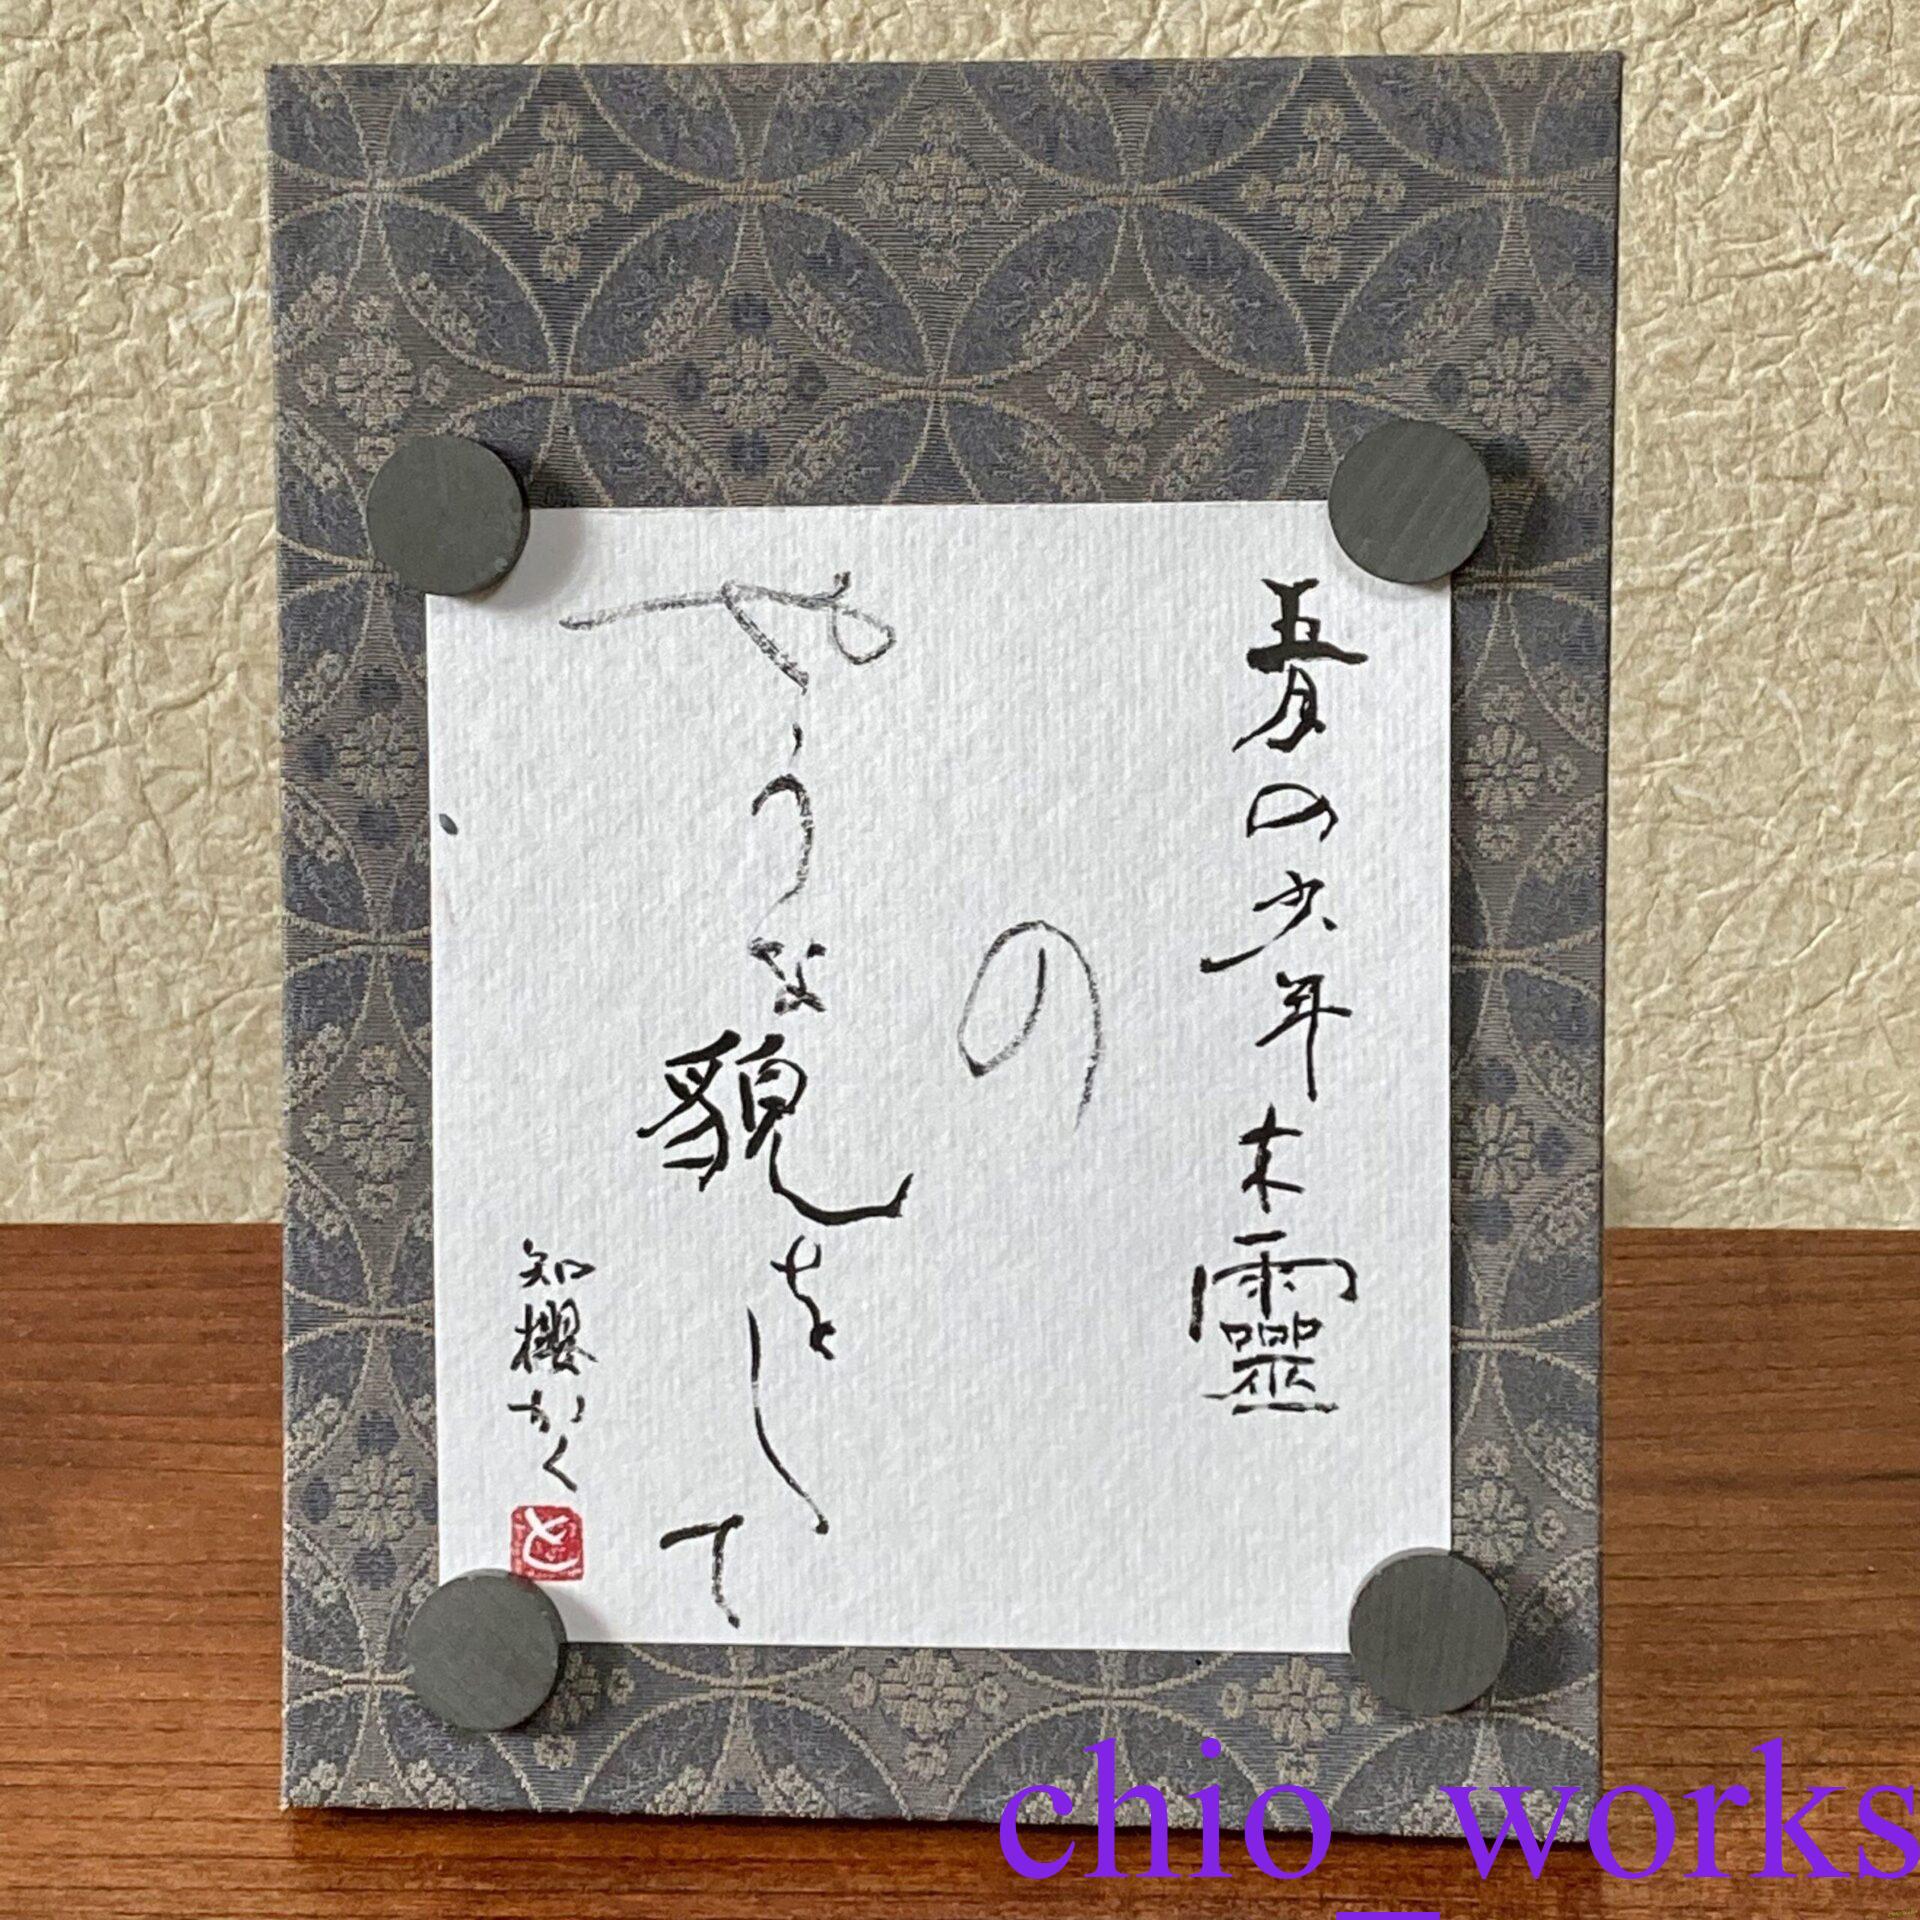 五月の少年木霊
の
やうな貌をして
知櫻かく
と
chio_works